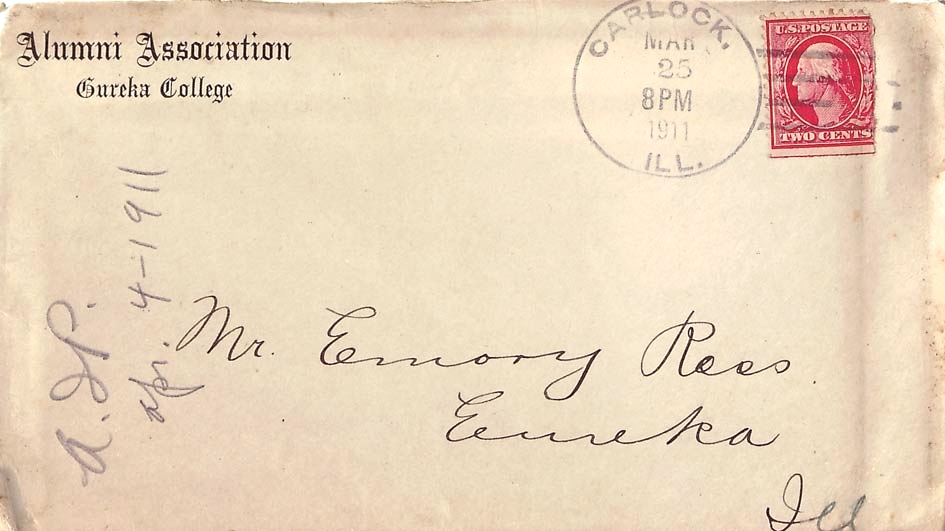 Alumni Association
Eureka College
CARLOCK,
MAR
25
8PM
1911
ILL.
U.S. POSTAGE
TWO CENTS
Apr. 4-1911
Mr. Emory Ross
Eureka
Ill